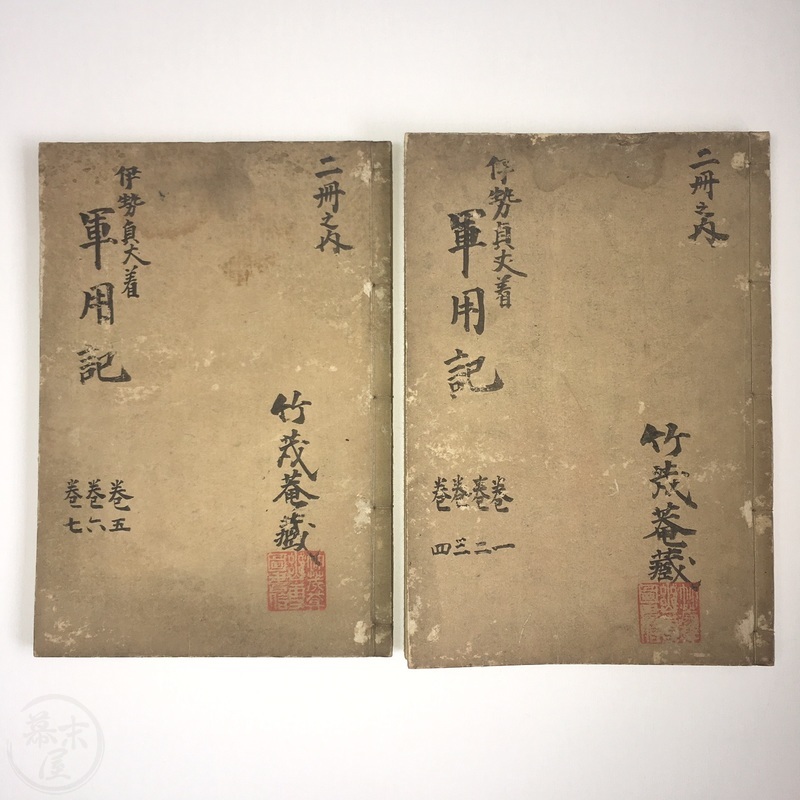 二冊之内
竹茂菴藏
伊勢貞丈着
軍用記
巻一
巻二
巻三
巻四
二冊之内
竹茂菴藏
伊勢貞丈着
軍用記
巻五
巻六
巻七
幕末屋